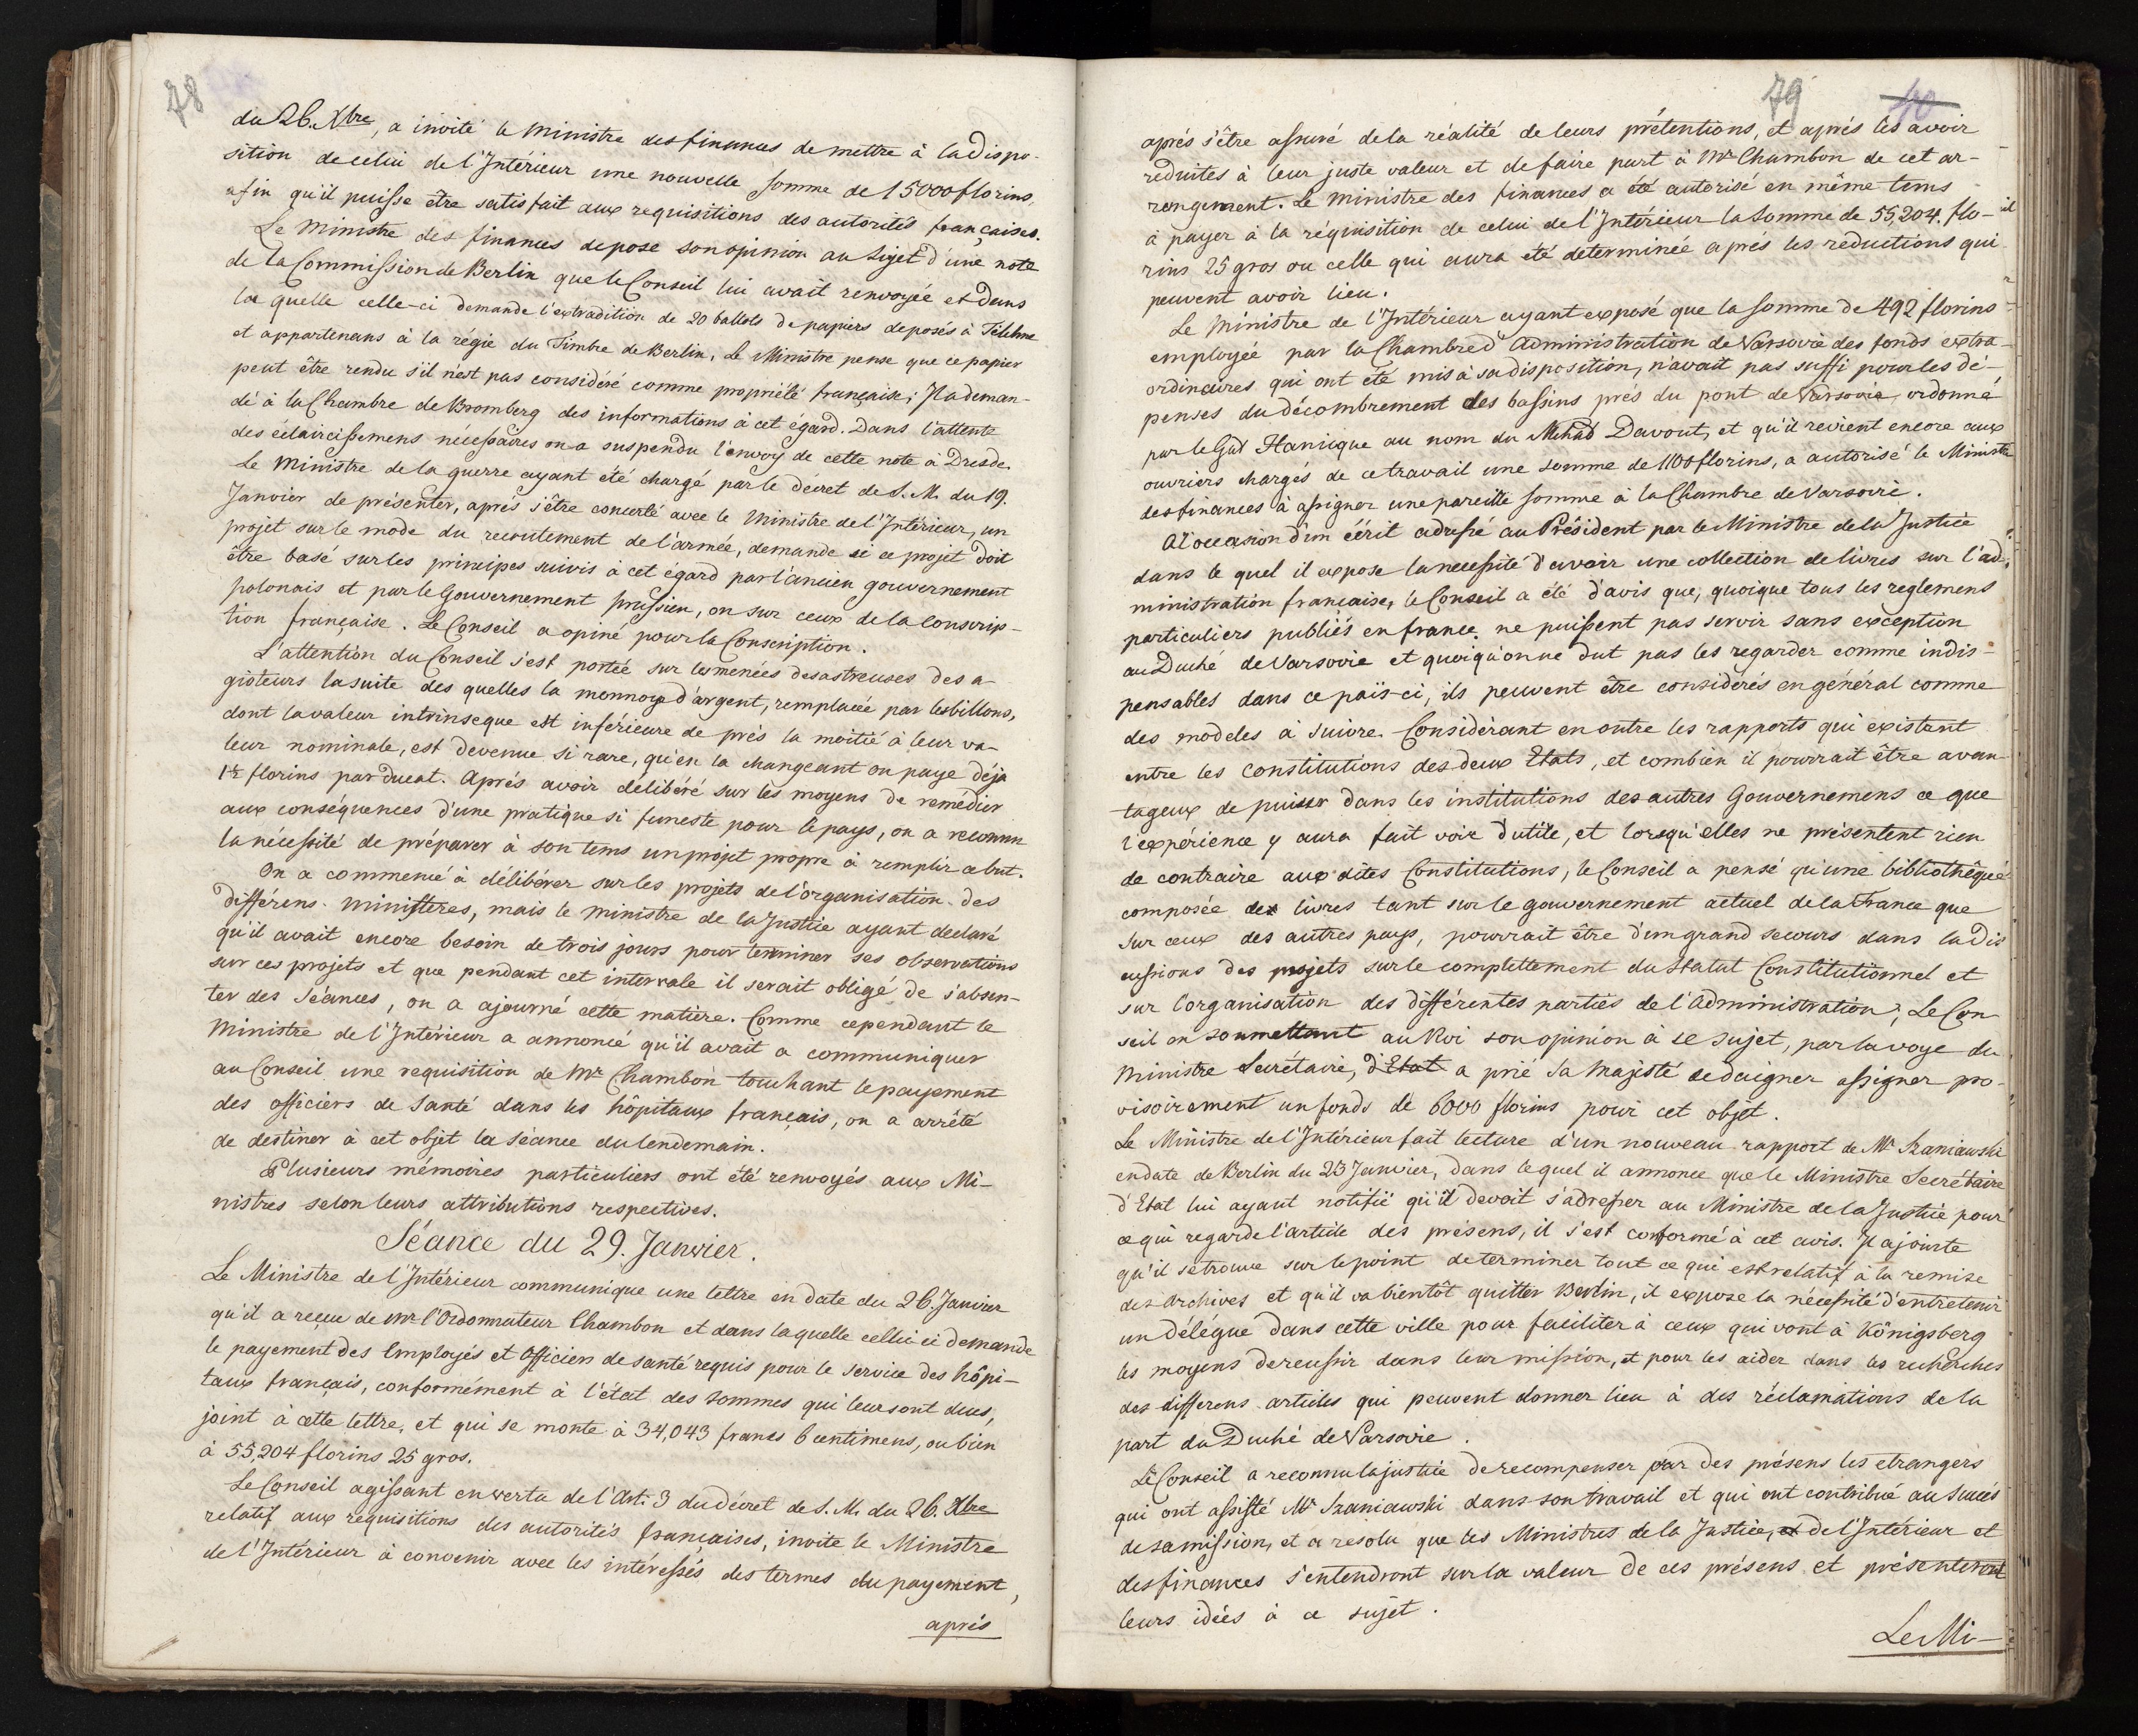 78
du 26. Xbre, a invité le Ministre des finances de mettre à la dispo-
sition de celui de l'Intérieur une nouvelle somme de 15000 florins,
afin qu'il puisse être satisfait aux requisitions des autorités françaises.
Le Ministre des finances depose son opinion au sujet d'une note
de la Commission de Berlin que le Conseil lui avait renvoyée et dans
la quelle celle-ci demande l'extradition de 20 ballots de papiers deposés à Filehne
et appartenans à la régie du Timbre de Berlin. Le Ministre pense que ce papier
peut être rendu s'il n'est pas considéré comme propriété française; Il a deman-
dé à la Chambre de Bromberg des informations à cet égard. Dans l'attente
des éclaircissemens nécessaires on a suspendu l'envoy de cette note à Dresde.
Le Ministre de la guerre ayant été chargé par le décret de S. M. du 19.
Janvier de présenter, après s'être concerté avec le Ministre de l'Intérieur, un
projet sur le mode du recrutement de l'armée, demande si ce projet doit
être basé sur les principes suivis à cet égard par l'ancien gouvernement
polonais et par le Gouvernement prussien, ou sur ceux de la conscrip-
tion française. Le Conseil a opiné pour la Conscription.
L'attention du Conseil s'est portée sur les menées desastreuses des a-
gioteurs la suite des quelles la monnoye d'argent, remplacée par les billons,
dont la valeur intrinseque est inférieure de près la moitié à leur va-
leur nominale, est devenue si rare, qu'en la changeant on paye déja
1½ florins par ducat. Après avoir délibéré sur les moyens de remédier
aux conséquences d'une pratique si funeste pour le pays, on a reconnu
la nécessité de préparer à son tems un projet propre à remplir ce but.
On a commencé à délibérer sur les projets de l'organisation des
différens Ministeres, mais le Ministre de la Justice ayant declaré
qu'il avait encore besoin de trois jours pour terminer ses observations
sur ces projets et que pendant cet intervale il serait obligé de s'absen-
ter des Séances, on a ajourné cette matière. Comme cependant le
Ministre de l'Intérieur a annoncé qu'il avait a communiquer
au Conseil une requisition de Mr Chambon touchant le payement
des officiers de Santé dans les hôpitaux français, on a arrêté
de destiner à cet objet la séance du lendemain.
Plusieurs mémoires particuliers ont été renvoyés aux Mi-
nistres selon leurs attributions respectives.
Séance du 29. Janvier.
Le Ministre de l'Intérieur communique une lettre en date du 26. Janvier
qu'il a reçue de Mr l'Ordonnateur Chambon et dans laquelle cellui ci demande
le payement des Employés et Officiers de santé requis pour le service des hôpi-
taux français, conformément à l'état des sommes qui leur sont dues,
joint à cette lettre, et qui se monte à 34,043 francs 6 centimens, ou bien
à 55,204 florins 25 gros.
Le Conseil agissant en vertu de l'Art: 3 du décret de S. M. du 26. Xbre
relatif aux requisitions des autorités françaises, invite le Ministre
de l'Intérieur à convenir avec les intéressés des termes du payement,
après
79
40
après s'être assuré de la réalité de leurs prétentions, et après les avoir
reduites à leur juste valeur et de faire part à Mr Chambon de cet ar-
rangement. Le Ministre des finances a été autorisé en même tems
à payer à la réquisition de celui de l'Intérieur la somme de 55,204. flo-
rins 25 gros ou celle qui aura été determinée après les reductions qui
peuvent avoir lieu.
Le Ministre de l'Intérieur ayant exposé que la somme de 492 florins
employée par la Chambre d'Administration de Varsovie des fonds extra-
ordinaires qui ont été mis à sa disposition, n'avait pas suffi pour les dé-
penses du décombrement des bassins près du pont de Varsovie, ordonné
par le Gral Hanique au nom du Mchal Davout, et qu'il revient encore aux
ouvriers chargés de ce travail une somme de 1100 florins, a autorisé le Ministre
des finances à assigner une pareille somme à la Chambre de Varsovie.
A l'occasion d'un écrit adressé au Président par le Ministre de la Justice
dans le quel il expose la necessité d'avoir une collection de livres sur l'ad-
ministration française, le Conseil a été d'avis que, quoique tous les reglemens
particuliers publiés en france, ne puissent pas servir sans exception
au Duché de Varsovie et quoiqu'on ne dut pas les regarder comme indis-
pensables dans ce païs-ci, ils peuvent être considérés en général comme
des modeles à suivre. Considérant en outre les rapports qui existent
entre les Constitutions des deux Etats, et combien il pourrait être avan-
tageux de puiser dans les institutions des autres Gouvernemens ce que
l'expérience y aura fait voir d'utile, et lorsqu'elles ne présentent rien
de contraire aux dites Constitutions, le Conseil a pensé qu'une bibliothèque
composée des livres tant sur le gouvernement actuel de la France que
sur ceux des autres pays, pourrait être d'un grand secours dans la dis
cussions des projets sur le complettement du Statut Constitutionnel et
sur l'organisation des différentes parties de l'Administration; Le Con
seil en soumettant au Roi son opinion à se sujet, par la voye du
Ministre Secrétaire, d'Etat a prié Sa Majesté de daigner assigner pro-
visoirement un fonds de 6000 florins pour cet objet.
Le Ministre de l'Intérieur fait lecture d'un nouveau rapport de Mr Szaniawski
en date de Berlin du 23 Janvier, dans le quel il annonce que le Ministre Secrétaire
d'Etat lui ayant notifié qu'il devoit s'adresser au Ministre de la Justice pour
ce qui regarde l'article des présens, il s'est conformé à cet avis. Il ajoute
qu'il se trouve sur le point de terminer tout ce qui est relatif à la remise
des Archives et qu'il va bientôt quitter Berlin, il expose la nécessité d'entretenir
un délégué dans cette ville pour faciliter à ceux qui vont à Königsberg
les moyens de reussir dans leur mission, et pour les aider dans les recherches
des differens articles qui peuvent donner lieu à des réclamations de la
part du Duché de Varsovie.
Le Conseil a reconnu la justice de recompenser par des présens les etrangers
qui ont assisté Mr Szaniawski dans son travail et qui ont contribué au succès
de sa mission, et a resolu que les Ministres de la Justice, et de l'Intérieur et
des finances s'entendront sur la valeur de ces présens et présenteront
leurs idées à ce sujet.
Le Mi-